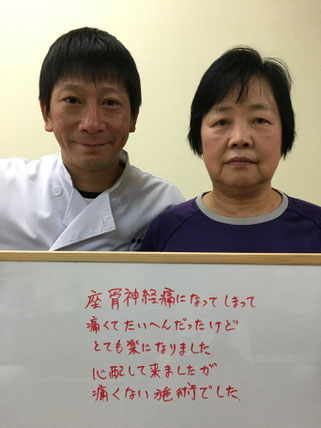 座骨神経痛になってしまって
痛くてたいへんだったけど
とても楽になりました
心配して来ましたが
痛くない施術でした。